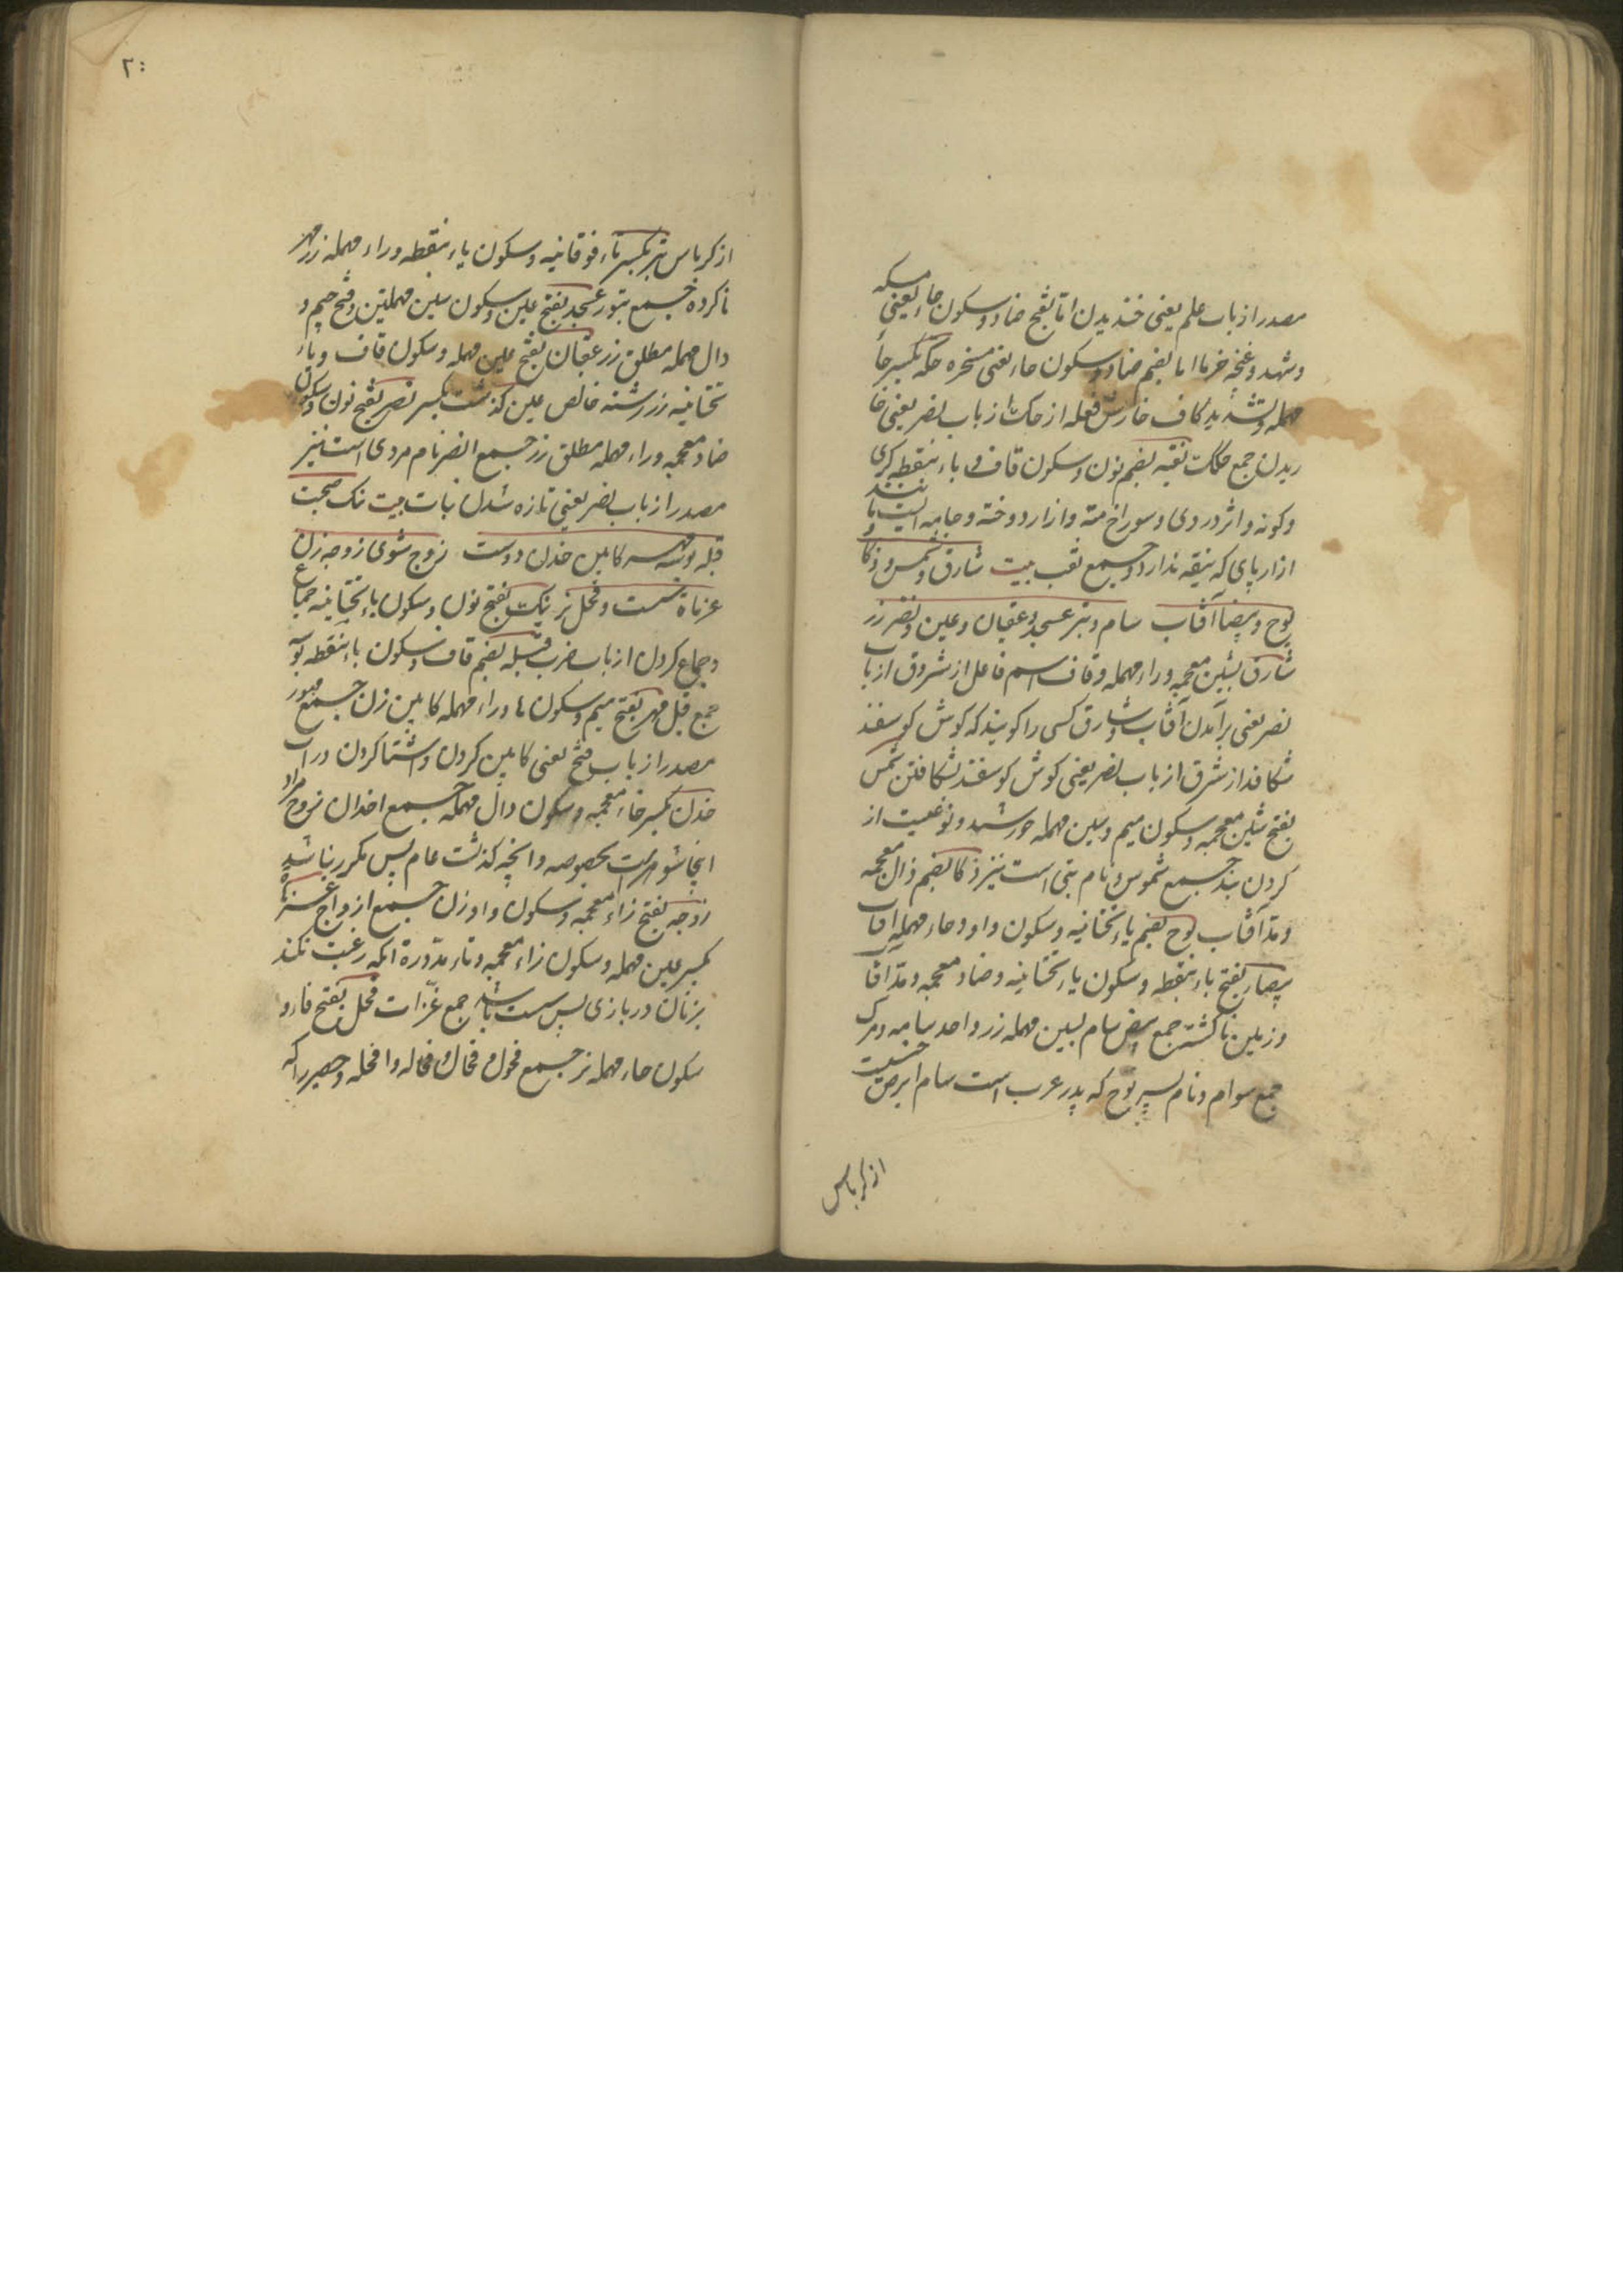 مصدر از باب علم یعنی خندیدن اما بفتح ضاد و سکون حاء یعنی مسکه
و شهد و غنچه خرما اما بضم ضاد و سکون حاء یعنی مسخره حکه بکسر حاء
مهمله و تشدید کاف خارش فعله از حک از باب نصر یعنی خا
ریدن جمع حکک نقبه بضم نون و سکون قاف و باء بنقطه کری
و کونه و اثر در وی و سوراخ و ازار دوخته و جامه ایست
ازار پای که نیفه ندارد و جمع نقب بیت شارق و شمس و ذکا
یوح و بیضا آفتاب سام و تبر عسجد و عقیان و عین و نضر زر
شارق بشین معجمه و راء مهمله و قاف اسم فاعل از شروق از باب
نصر یعنی برآمدن آفتاب و شارق کسی را کویند که کوش کوسفند
شکافد از شرق از باب نصر یعنی کوش کوسفند شکافتن شمس
بفتح شین معجمه و سکون میم و سین مهمله خورشید و نوعیست از
کردن بند جمع شموس و نام بتی است نیز ذکا بضم ذال معجمه
و مد آفتاب یوح بضم یاء تحتانیه و سکون واو و حاء مهمله آفتاب
بیضاء بفتح باء بنقطه و سکون یاء تحتانیه و ضاد معجمه و مد آفتا
و زمین ناکشته جمع بیض سام بسین مهمله زر واحد سامه و مرک
جمع سوام و نام پسر نوح که پدر عرب است سام ابرص
از کرباس
۲۰
از کرباس تبر بکسر تاء فوقانیه و سکون باء بنقطه و راء مهمله زر مهر
ناکرده جمع تبور عسجد بفتح عین و سکون سین مهملتین و فتح جیم و
دال مهمله مطلق زر عقیان بفتح عین مهمله و سکون قاف و یاء
تحتانیه زر رسته خالص عین کذشت بکسر نضر بفتح نون و سکون
ضاد معجمه و راء مهمله مطلق زر جمع انضر نام مردی است نیز
مصدر از باب نصر یعنی تازه شدن بیت نیک صحبت
قبله بوسه مهر کابین خدن دوست زوج شوی زوجه زن
عزهاة سست و فحل نر نیک بفتح نون و سکون یاء تحتانیه جماع
و جماع کردن از باب ضرب قبله بضم قاف و سکون باء بنقطه بوسه
جمع قبل مهر بفتح میم و سکون ها و راء مهمله کابین زن جمع مهور
مصدر از باب فتح یعنی کابین کردن و اشنا کردن در آب
خدن بکسر خاء معجمه و سکون دال مهمله جمع اخدان زوج مراد
اینجا شوهرست بخصوصه و انچه کذشت عام پس مکرر نباشد
زوجه بفتح زاء معجمه و سکون واو زن جمع ازواج
بکسر عین مهمله و سکون زاء معجمه و تاء مدوره انکه رغبت نکند
بزنان در بازی پس سست باشد جمع فحل بفتح فاء و
سکون حاء مهمله نر جمع فحول و فحال و فحاله و افحله و حصیر را که